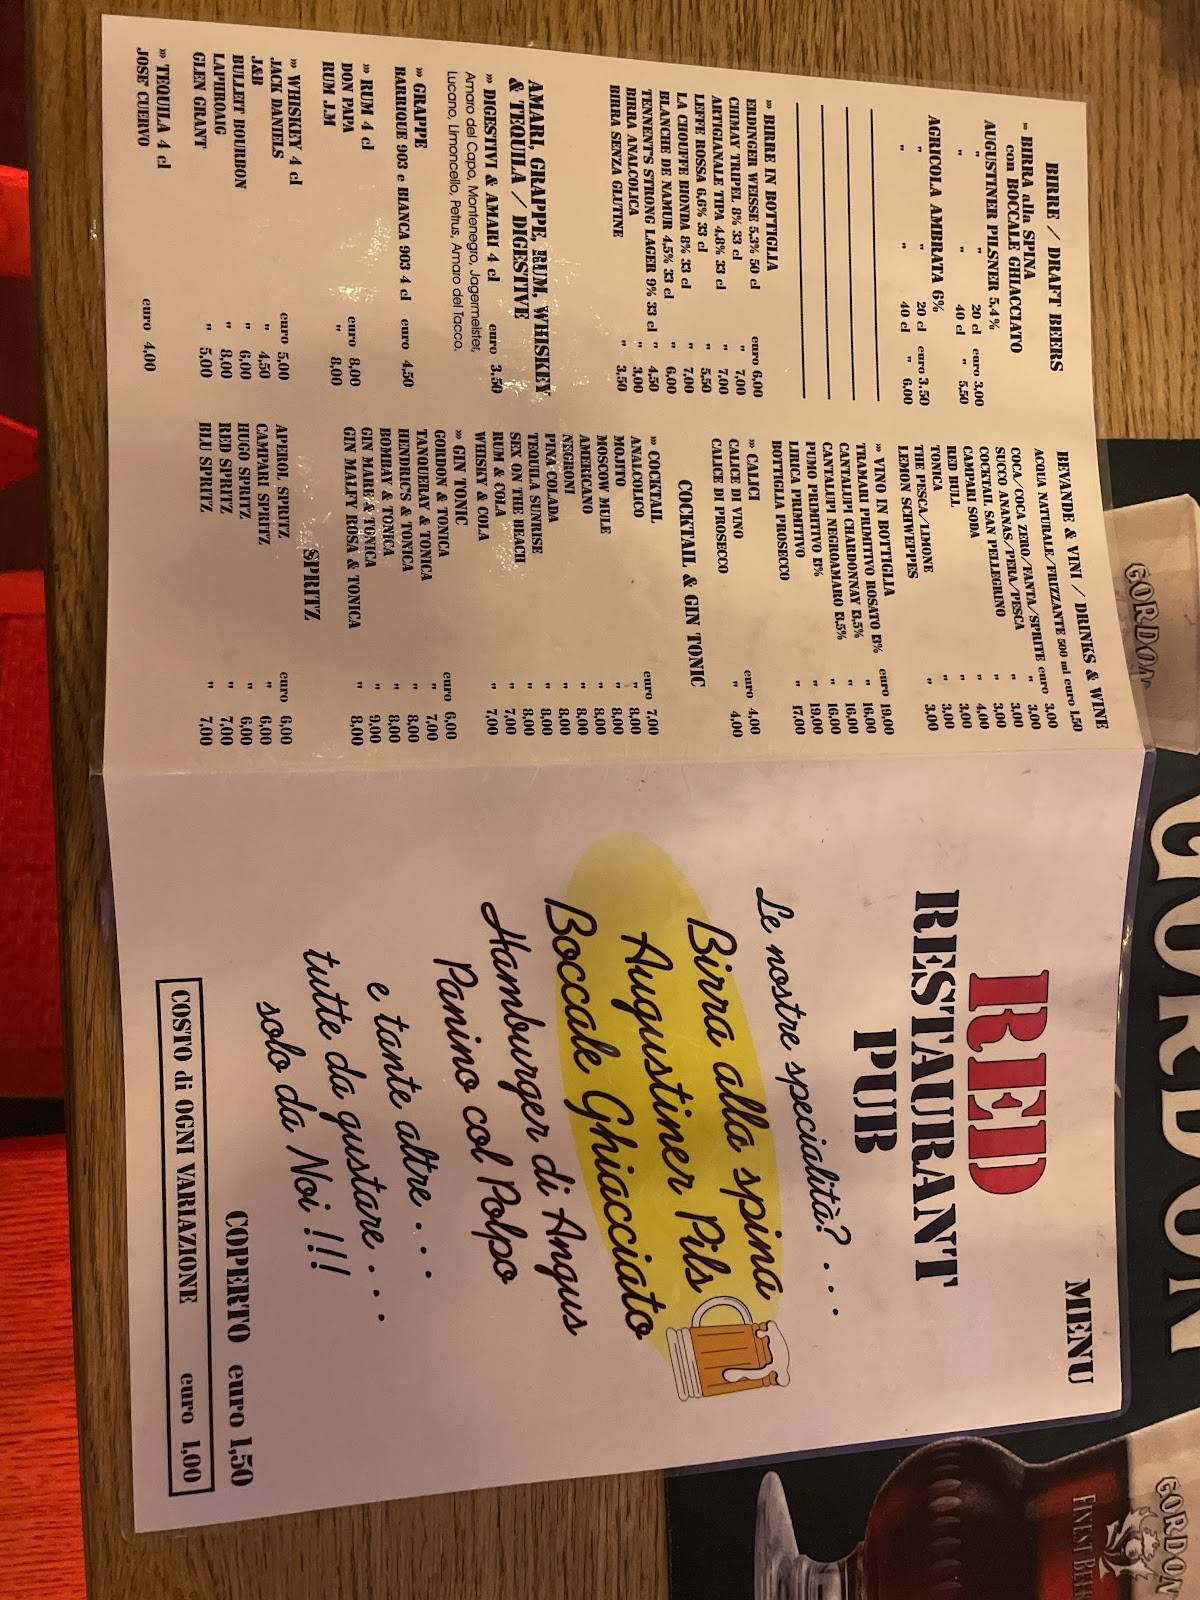 BIRRE / DRAFT BEERS
» BIRRA alla SPINA
con BOCCALE GHIACCIATO
AUGUSTINER PILSNER 5.4%
" " 20 cl euro 3,00
" " 40 cl " 5,50
AGRICOLA AMBRATA 6%
" " 20 cl euro 3.50
" " 40 cl " 6,00
» BIRRE IN BOTTIGLIA
ERDINGER WEISSE 5,3% 50 cl euro 6,00
CHIMAY TRIPEL 8% 33 cl " 7,00
ARTIGIANALE TIPA 4,8% 33 cl " 7,00
LEFFE ROSSA 6,6% 33 cl " 5,50
LA CHOUFFE BIONDA 8% 33 cl " 7,00
BLANCHE DE NAMUR 4.5% 33 cl " 6,00
TENNENT'S STRONG LAGER 9% 33 cl " 4,50
BIRRA ANALCOLICA " 3,00
BIRRA SENZA GLUTINE " 3,50
AMARI, GRAPPE, RUM, WHISKEY
& TEQUILA / DIGESTIVE
» DIGESTIVI & AMARI 4 cl euro 3,50
Amaro del Capo, Montenegro, Jagermeister,
Lucano, Limoncello, Petrus, Amaro del Tacco.
» GRAPPE
BARRIQUE 903 e BIANCA 903 4 cl euro 4,50
» RUM 4 cl
DON PAPA euro 8,00
RUM J.M " 8,00
» WHISKEY 4 cl
JACK DANIELS euro 5,00
J&B " 4,50
BULLEIT BOURBON " 6,00
LAPHROAIG " 8,00
GLEN GRANT " 5,00
» TEQUILA 4 cl
JOSE' CUERVO euro 4,00
BEVANDE & VINI / DRINKS & WINE
ACQUA NATURALE/FRIZZANTE 500 ml euro 1,50
COCA/COCA ZERO/FANTA/SPRITE euro 3,00
SUCCO ANANAS/PERA/PESCA " 3,00
COCKTAIL SAN PELLEGRINO " 3,00
CAMPARI SODA " 3,00
RED BULL " 4,00
TONICA " 3,00
THE PESCA/LIMONE " 3,00
LEMON SCHWEPPES " 3,00
» VINO IN BOTTIGLIA
TRAMARI PRIMITIVO ROSATO 13% euro 19,00
CANTALUPI CHARDONNAY 13,5% " 16,00
CANTALUPI NEGROAMARO 13,5% " 16,00
PUMO PRIMITIVO 13% " 16,00
LIRICA PRIMITIVO " 19,00
BOTTIGLIA PROSECCO " 17,00
» CALICI
CALICE DI VINO euro 4,00
CALICE DI PROSECCO " 4,00
COCKTAIL & GIN TONIC
» COCKTAIL
ANALCOLICO euro 7,00
MOJITO " 8,00
MOSCOW MULE " 8,00
AMERICANO " 8,00
NEGRONI " 8,00
PINA COLADA " 8,00
TEQUILA SUNRISE " 8,00
SEX ON THE BEACH " 8,00
RUM & COLA " 7,00
WHISKY & COLA " 7,00
» GIN TONIC
GORDON & TONICA euro 6,00
TANQUERAY & TONICA " 7,00
HENDRIC'S & TONICA " 8,00
BOMBAY & TONICA " 8,00
GIN MARE & TONICA " 9,00
GIN MALFY ROSA & TONICA " 8,00
SPRITZ
APEROL SPRITZ euro 6,00
CAMPARI SPRITZ " 6,00
HUGO SPRITZ " 6,00
RED SPRITZ " 7,00
BLU SPRITZ " 7,00
MENU
RED
RESTAURANT
PUB
Le nostre specialità? . . .
Birra alla spina
Augustiner Pils
Boccale Ghiacciato
Hamburger di Angus
Panino col Polpo
e tante altre . . .
tutte da gustare . . .
solo da Noi !!!
COPERTO euro 1,50
COSTO di OGNI VARIAZIONE euro 1,00
GORDON
GORDON
GORDON
FINEST BEER